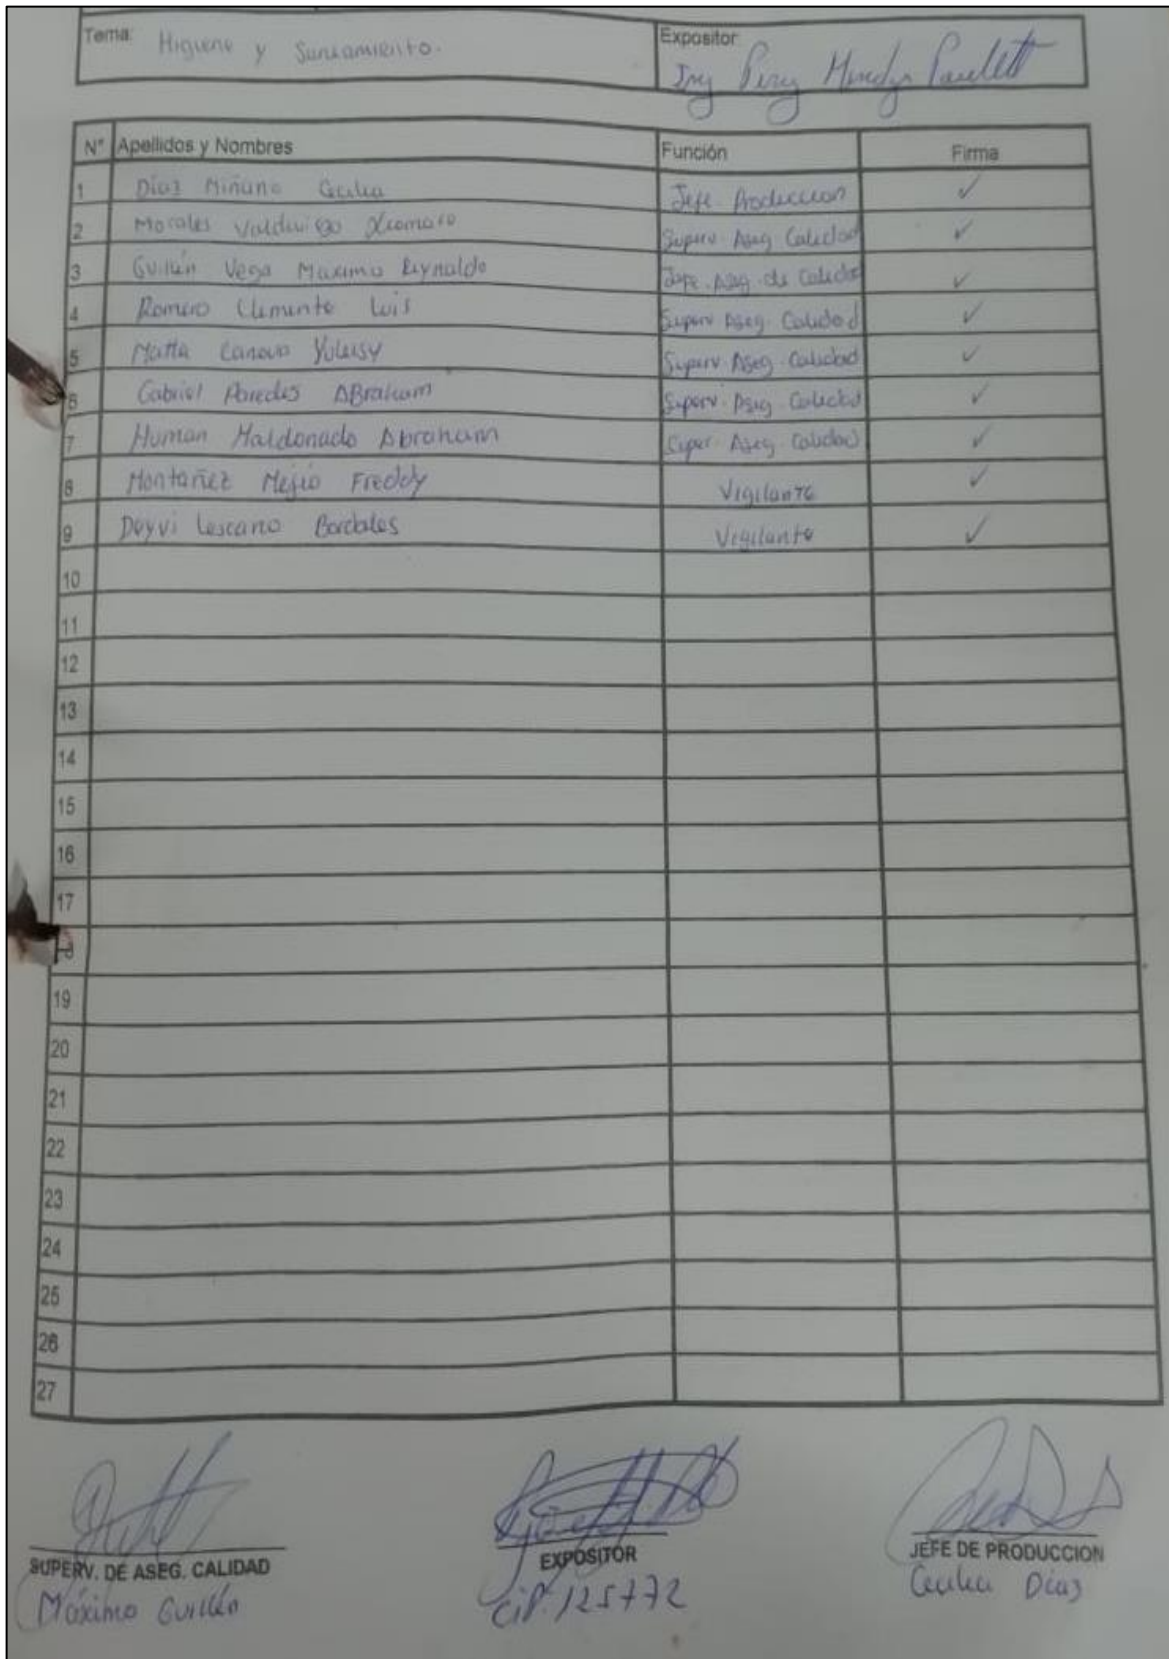 Tema: Higiene y Saneamiento.
Expositor:
Ing Perez Paulett
N° Apellidos y Nombres Función Firma
1 Díaz Miñano Cecilia Jefe. Produccion ✓
2 Morales Valdivieso Xiomara Superv. Aseg Calidad ✓
3 Guillén Vega Maximo Reynaldo Jefe. Aseg. de Calidad ✓
4 Romero Clemente Luis Superv Aseg. Calidad ✓
5 Matta Canova Yuleisy Superv. Aseg. Calidad ✓
6 Gabriel Paredes ABraham Superv. Aseg. Calidad ✓
7 Human Maldonado Abraham Super. Aseg. Calidad ✓
8 Montañez Mejia Freddy Vigilante ✓
9 Deyvi Lescano Bardales Vigilante ✓
10
11
12
13
14
15
16
17
19
20
21
22
23
24
25
26
27
SUPERV. DE ASEG. CALIDAD EXPOSITOR JEFE DE PRODUCCION
Máximo Guillén CiP. 125772 Cecilia Díaz